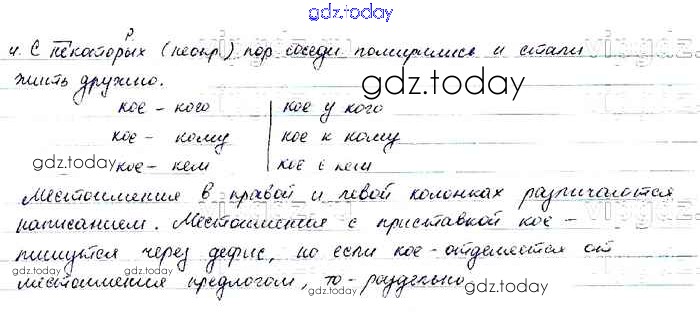 gdz.today
Р
4. С некоторых (неопр.) пор соседи помирились и стали
жить дружно.
gdz.today
кое - кого | кое у кого
кое - кому | кое к кому
gdz.today
кое - кем | кое с кем
gdz.today
Местоимения в правой и левой колонках различаются
написанием. Местоимения с приставкой кое -
пишутся через дефис, но если кое - отделяется от
gdz.today
gdz.today
местоимения предлогом, то - раздельно.
gdz.today